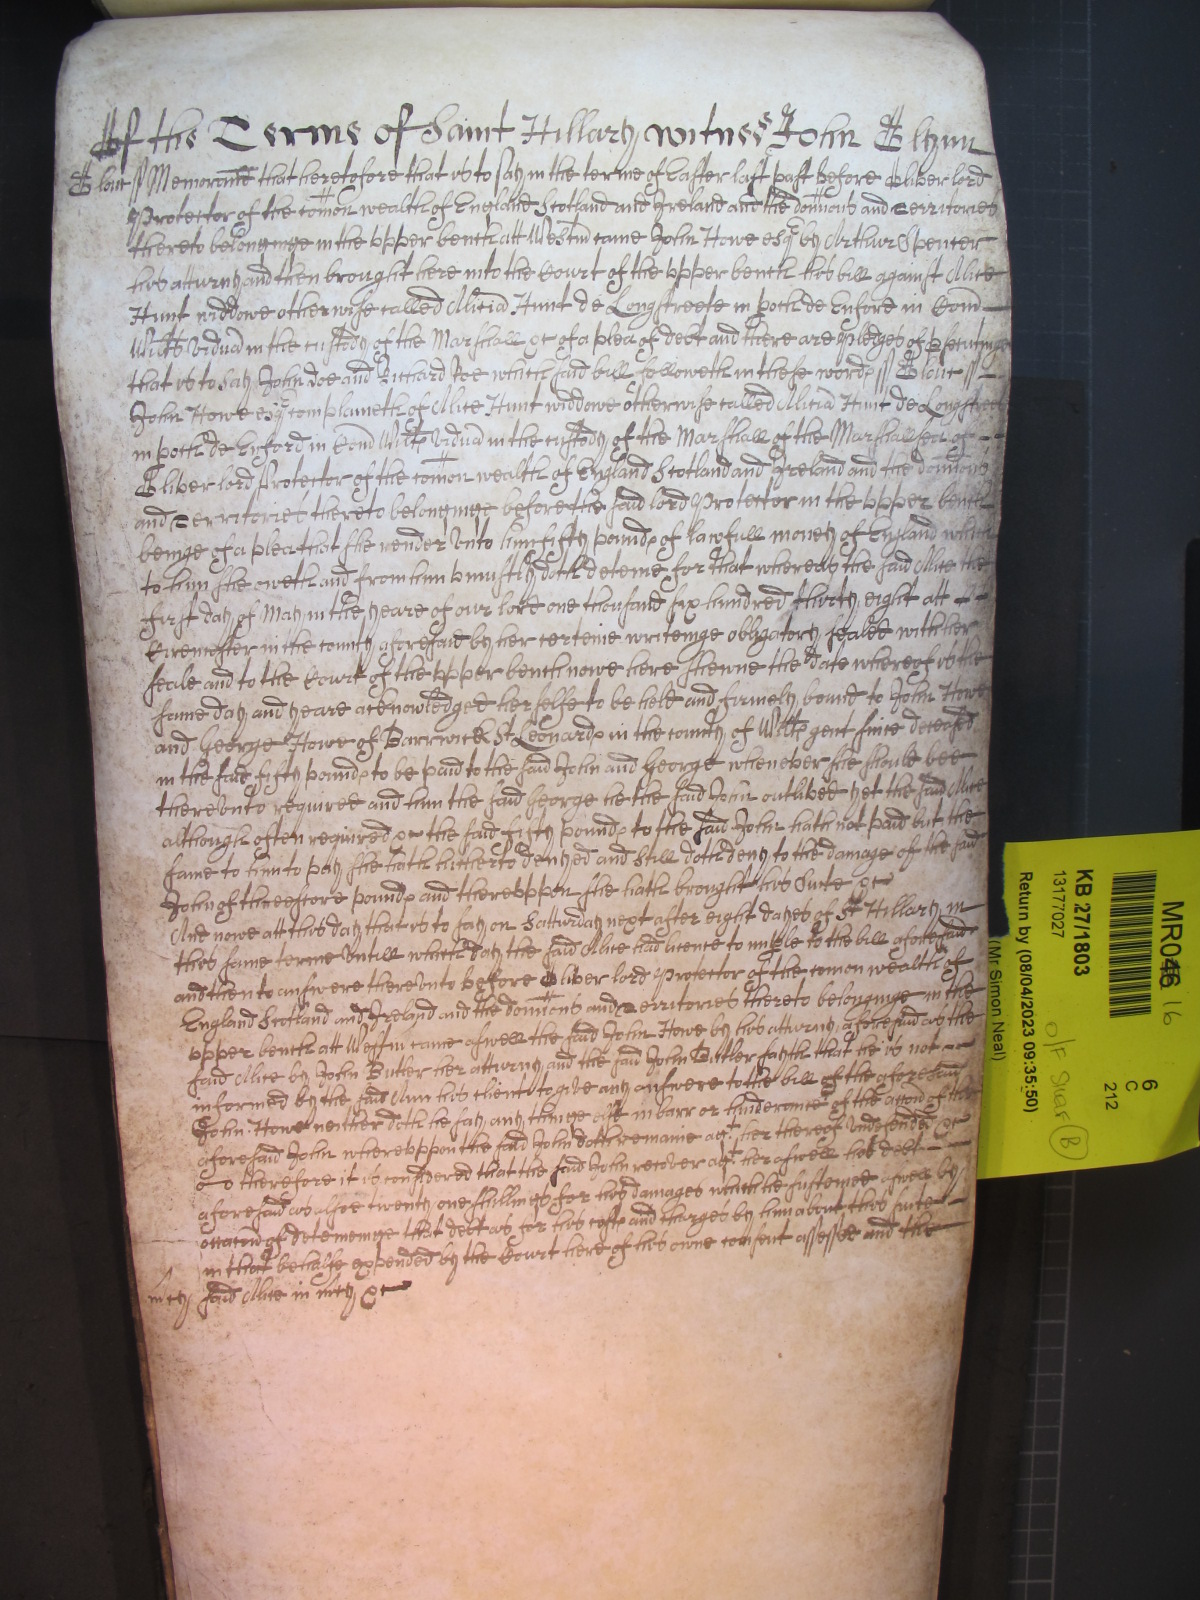 Of the Terme of Saint Hillary witnes John Glynn
Glouc ss Memorand that heretofore that is to say in the terme of Easter last past before Oliver lord
Protector of the comon wealth of England Scotland and Ireland and the dominions and Territories
thereto belonginge in the upper bench att Westm came John Howe esqr by Arthur Spenser
his atturny and then brought here into the Court of the upper bench his bill against Alice
Hunt widdowe otherwise called Alicia Hunt de Longstreete in poch de Enford in Com
Wiltes vidua in the custody of the Marshall &c of a plea of debt and there are pledges of psecutinge
that is to say John Doe and Richard Roe which said bill followeth in these words ss Glouc ss
John Howe esqr complaineth of Alice Hunt widdowe otherwise called Alicia Hunt de Longstreet
in poch de Enford in Com Wiltes vidua in the custody of the Marshall of the Marshalsea of
Oliver lord Protector of the comon wealth of England Scotland and Ireland and the dominions
and Territories thereto belonginge before the said lord Protector in the upper bench
beinge of a plea that she render unto him fifty pounds of lawfull money of England which
to him she oweth and from him uniustly doth deteine for that whereas the said Alice the
first day of May in the yeare of our lord one thousand six hundred thirty eight att
Cirencester in the county aforesaid by her certeine writeinge obligatory sealed with her
seale and to the Court of the upper bench nowe here shewne the date whereof is the
same day and yeare acknowledged her selfe to be held and firmely bound to John Howe
and George Howe of Barrwick St Leonards in the county of Wiltes gent since deceased
in the said fifty pounds to be paid to the said John and George whenever she should bee
thereunto required and him the said George he the said John outlived yet the said Alice
although often required &c the said fifty pounds to the said John hath not paid but the
same to him to pay she hath hitherto denyed and still doth deny to the damage of the said
John of threescore pounds and thereuppon she hath brought his Suite &c
And nowe att this day that is to say on Satturday next after eight dayes of St Hillary in
this same terme untill which day the said Alice had licence to imple to the bill aforesaid
and then to answere thereunto before Oliver lord Protector of the comon wealth of
England Scotland and Ireland and the dominions and Territories thereto belonginge in the
upper bench att Westm came aswell the said John Howe by his atturny aforesaid as the
said Alice by John Butler her atturny and the said John Butler sayth that he is not
informed by the said Ann his client to give any answere to the bill of the aforesaid
John Howe neither doth he say any thinge els in barr or hinderance of the accon of the
aforesaid John whereuppon the said John doth remaine agt her thereof undefended &c
therefore it is considered that the said John recover agt her aswell his debt
aforesaid as alsoe twenty one shillings for his damages which he susteined aswell by
occacon of deteineinge that debt as for his costs and charges by him about his suite
in that behalfe expended by the Court here of his owne consent assessed and the
mcy said Alice in mcy &c
MR046 16
KB 27/1803
13177027
Return by (08/04/2023 09:35:50)
(Mr Simon Neal)
6
C
212
O/F
B